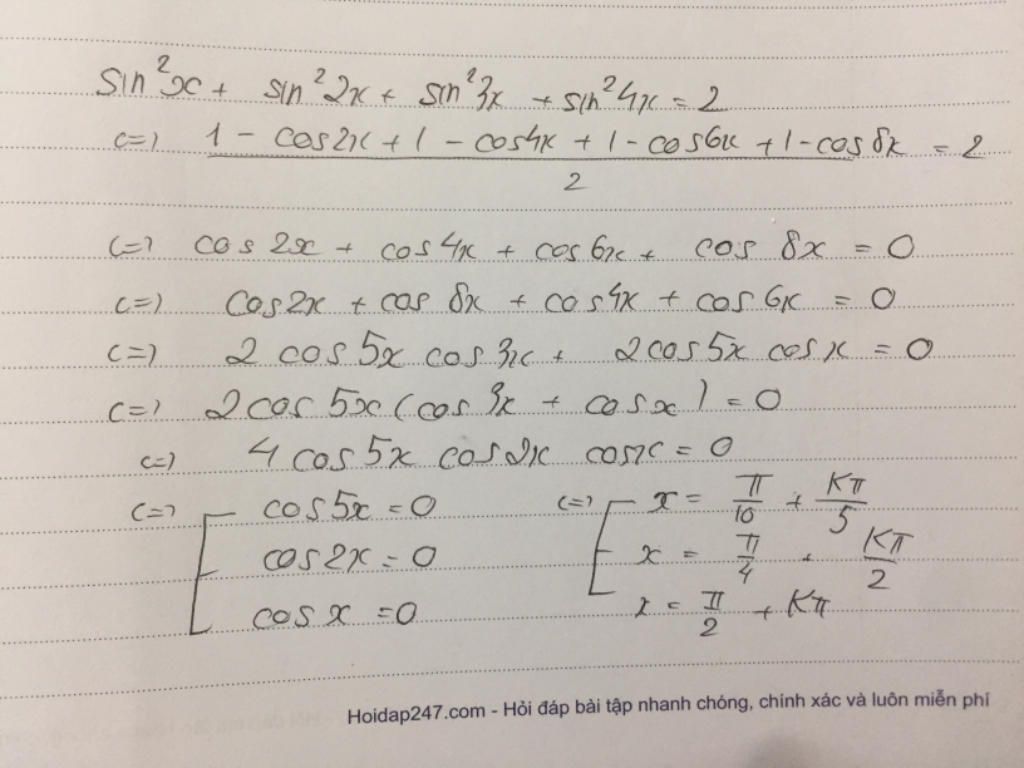 sin²x + sin²2x + sin²3x + sin²4x = 2
<=> (1 - cos2x + 1 - cos4x + 1 - cos6x + 1 - cos8x) / 2 = 2
<=> cos 2x + cos 4x + cos 6x + cos 8x = 0
<=> cos2x + cos 8x + cos4x + cos 6x = 0
<=> 2 cos 5x cos 3x + 2 cos 5x cos x = 0
<=> 2 cos 5x (cos 3x + cos x) = 0
<=> 4 cos 5x cos 2x cos x = 0
<=> [ cos 5x = 0 <=> [ x = π/10 + Kπ/5
cos 2x = 0 x = π/4 + Kπ/2
cos x = 0 x = π/2 + Kπ
Hoidap247.com - Hỏi đáp bài tập nhanh chóng, chính xác và luôn miễn phí